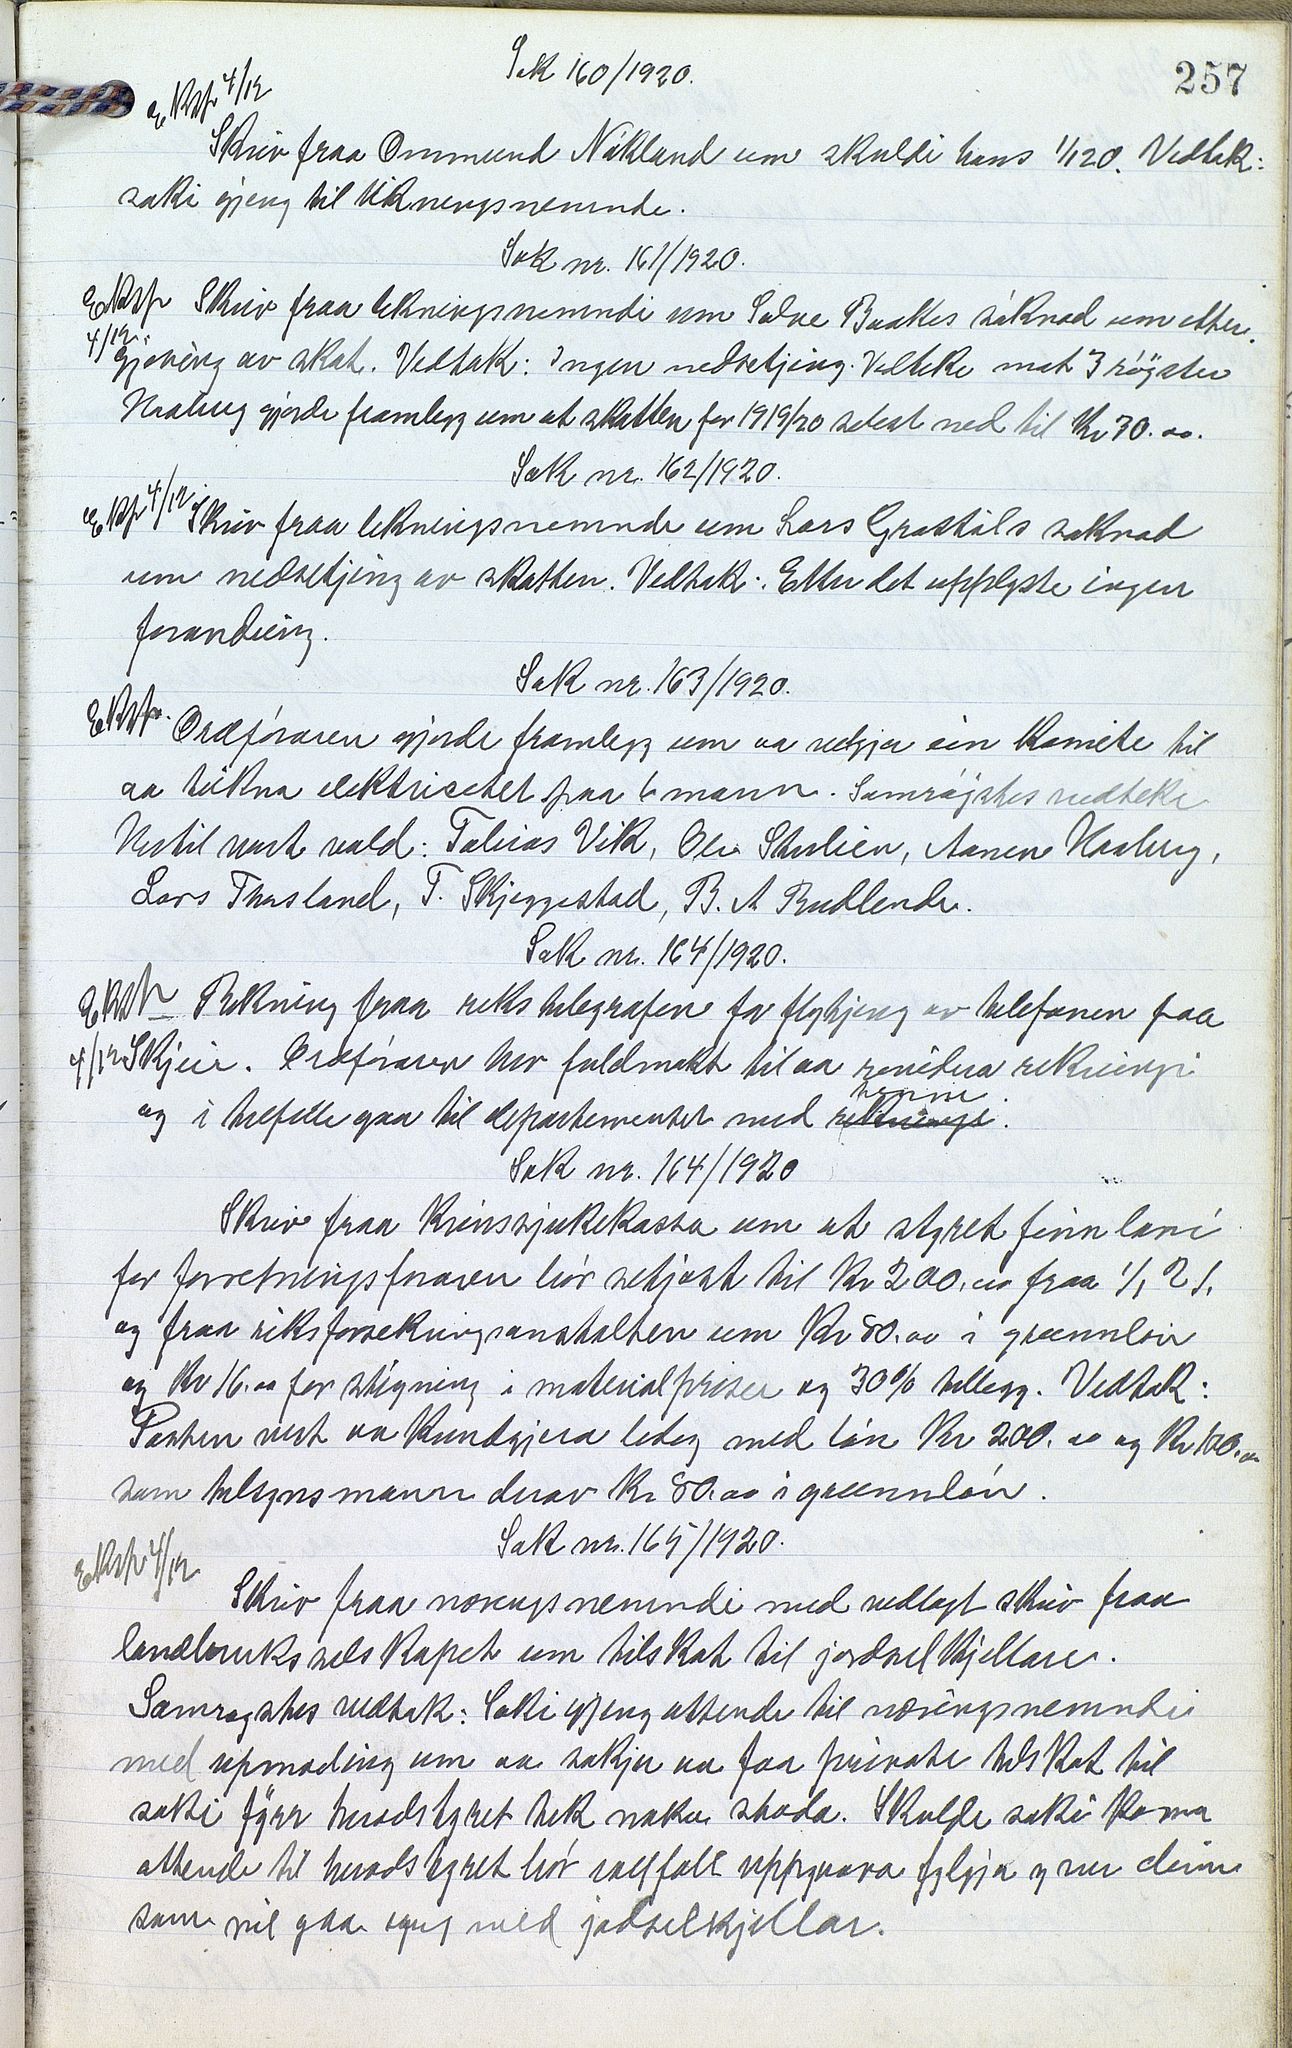 257
Sak 160/1920.
Eksp 4/12
Skriv fraa Ommund Nókland um skuldi hans 1/1 20. Vedtak:
saki gjeng til likningsnemnde.
Sak nr. 161/1920.
Eksp 4/12. Skriv fraa likningsnemndi um Salve Baakes söknad um etter-
gjeving av skat. Vedtak: Ingen nedsetjing. Vedteke mot 3 röyster
Haaberg gjorde framlegg um at skatten for 1919/20 setest ned til Kr 30.00.
Sak nr. 162/1920.
Eksp 4/12 Skriv fraa likningsnemnde um Lars söknad
um nedsetjing av skatten. Vedtak: Etter det upplyste ingen
forandring.
Sak nr. 163/1920.
Eksp. Ordföraren gjorde framlegg um aa velgja ein komite til
aa teikna elektrisitet paa 6 mann. Samröystes vedteke
Hertil vart vald: Tobias Vik, Ole Stulien, Aanen Haaberg,
Lars Thesland, T. Skjeggestad, B. A. Rudlende.
Sak nr. 164/1920.
Eksp 4/12 Rekning fraa rikstelegrafen for flytjing av telefonen fraa
Skjeie. Ordföraren hev fuldmakt til aa revidera rekningi
og i tilfelle gaa til departementet med rekningi henne.
Sak nr. 164/1920
Skriv fraa Krinssjukekassa um at styret finn löni
for forretningsföraren bör setjast til Kr 200.00 fraa 1/1 21.
og fraa riksforsekringsanstalten um Kr 80.00 i grunnlön
og Kr 16.00 for stigning i materialpriser og 30% tillegg. Vedtak:
Posten vert aa kundgjera ledig med lön Kr 200.00 og Kr 100.00
som tilsynsmann derav Kr 80.00 i grunnlön.
Sak nr. 165/1920.
Eksp 4/12
Skriv fraa næringsnemndi med vedlagt skriv fraa
landbruksselskapet um tilskot til jordselkjellare.
Samrøystes vedtak: Saki gjeng attende til næringsnemndi
med upmoding um aa søkja aa faa private tilskot til
saki fyrr heradstyret tek noko stode. Skulde saki koma
attende til heradstyret bör iallfall uppgaava fylgja yver deim
som vil gaa igang med jodselkjellar.